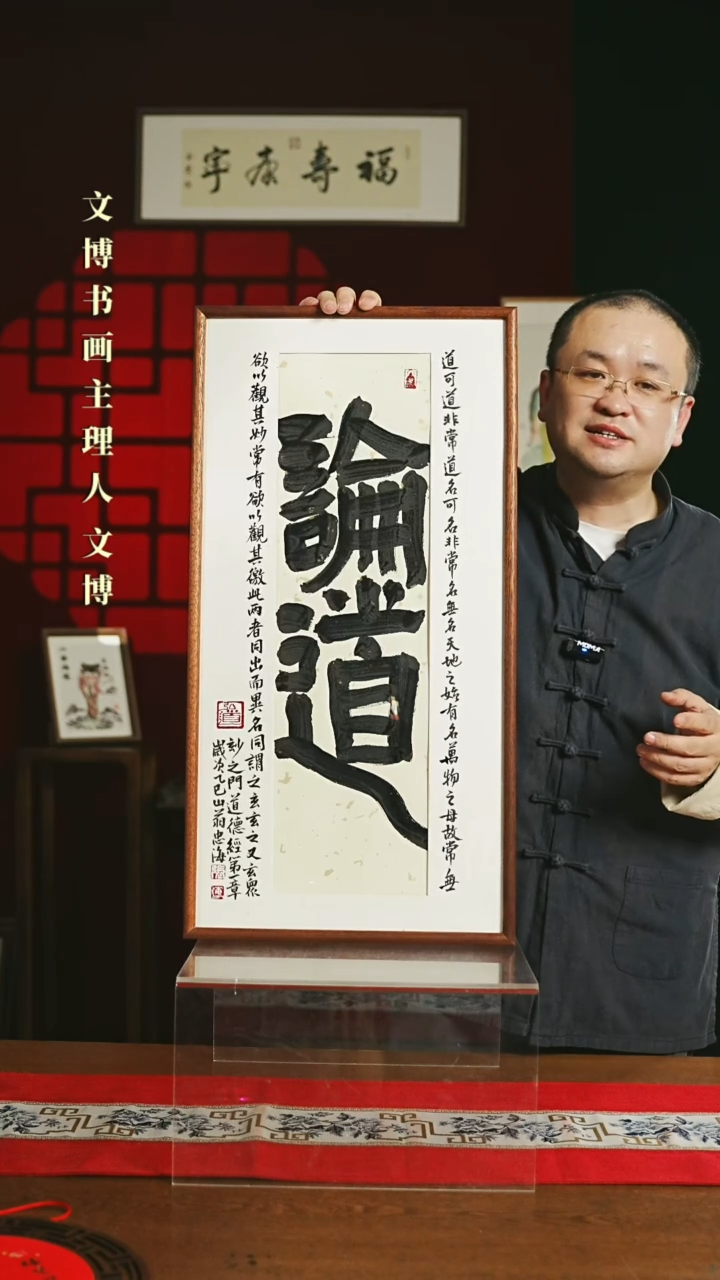 福壽康寧
文博书画主理人文博
道可道非常道名可名非常名無名天地之始有名萬物之母故常無
論道
欲以觀其妙常有欲以觀其徼此兩者同出而異名同謂之玄玄之又玄眾
妙之門道德經第一章
歲次乙巳山翁忠海
MOMA